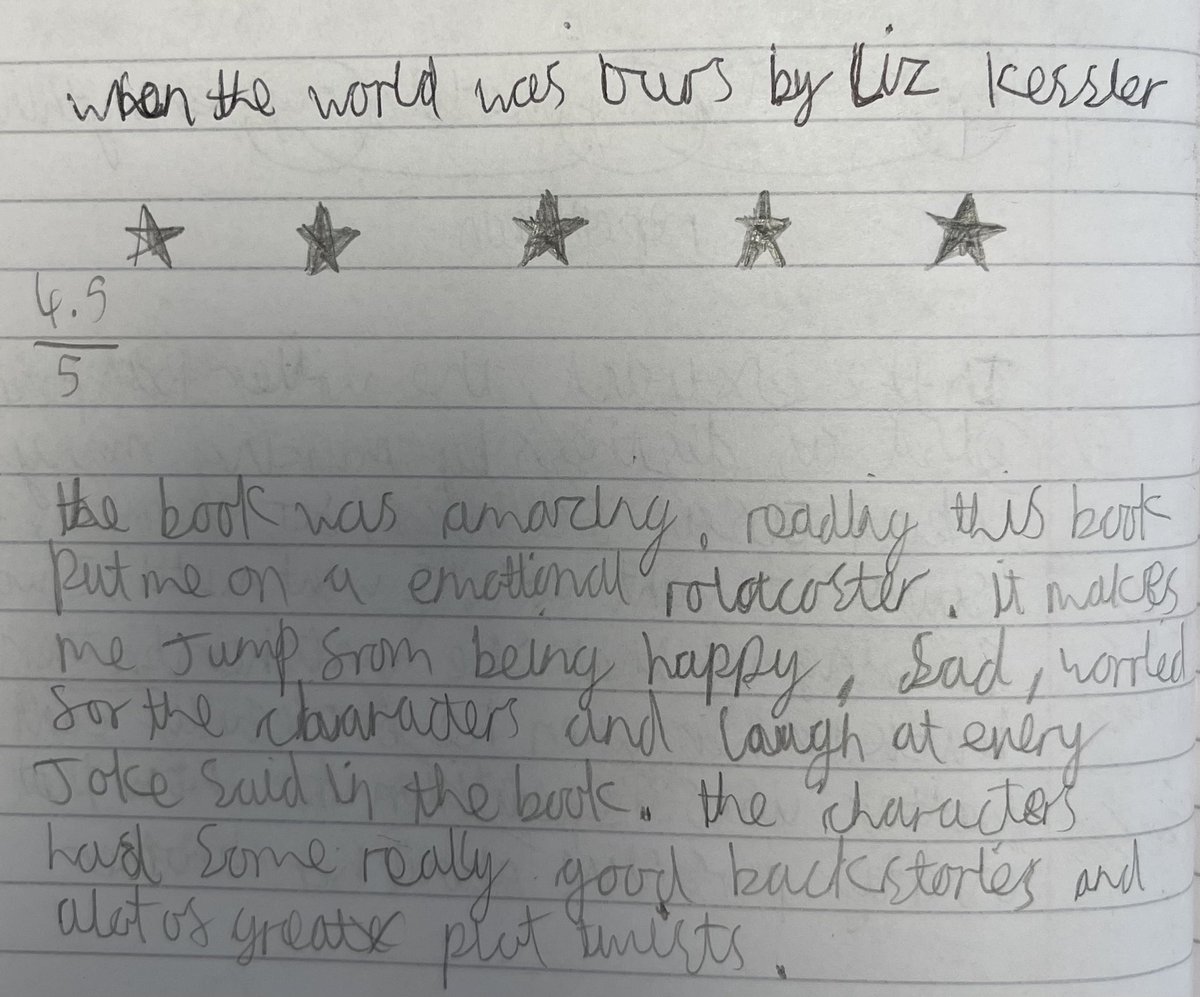 when the world was ours by Liz Kessler
4.5
5
the book was amazing. reading this book
put me on a emotional rolatcoster. it makes
me Jump from being happy, sad, worried
for the characters and laugh at every
Joke said in the book. the characters
had some really good backstories and
alot of great plot twists.